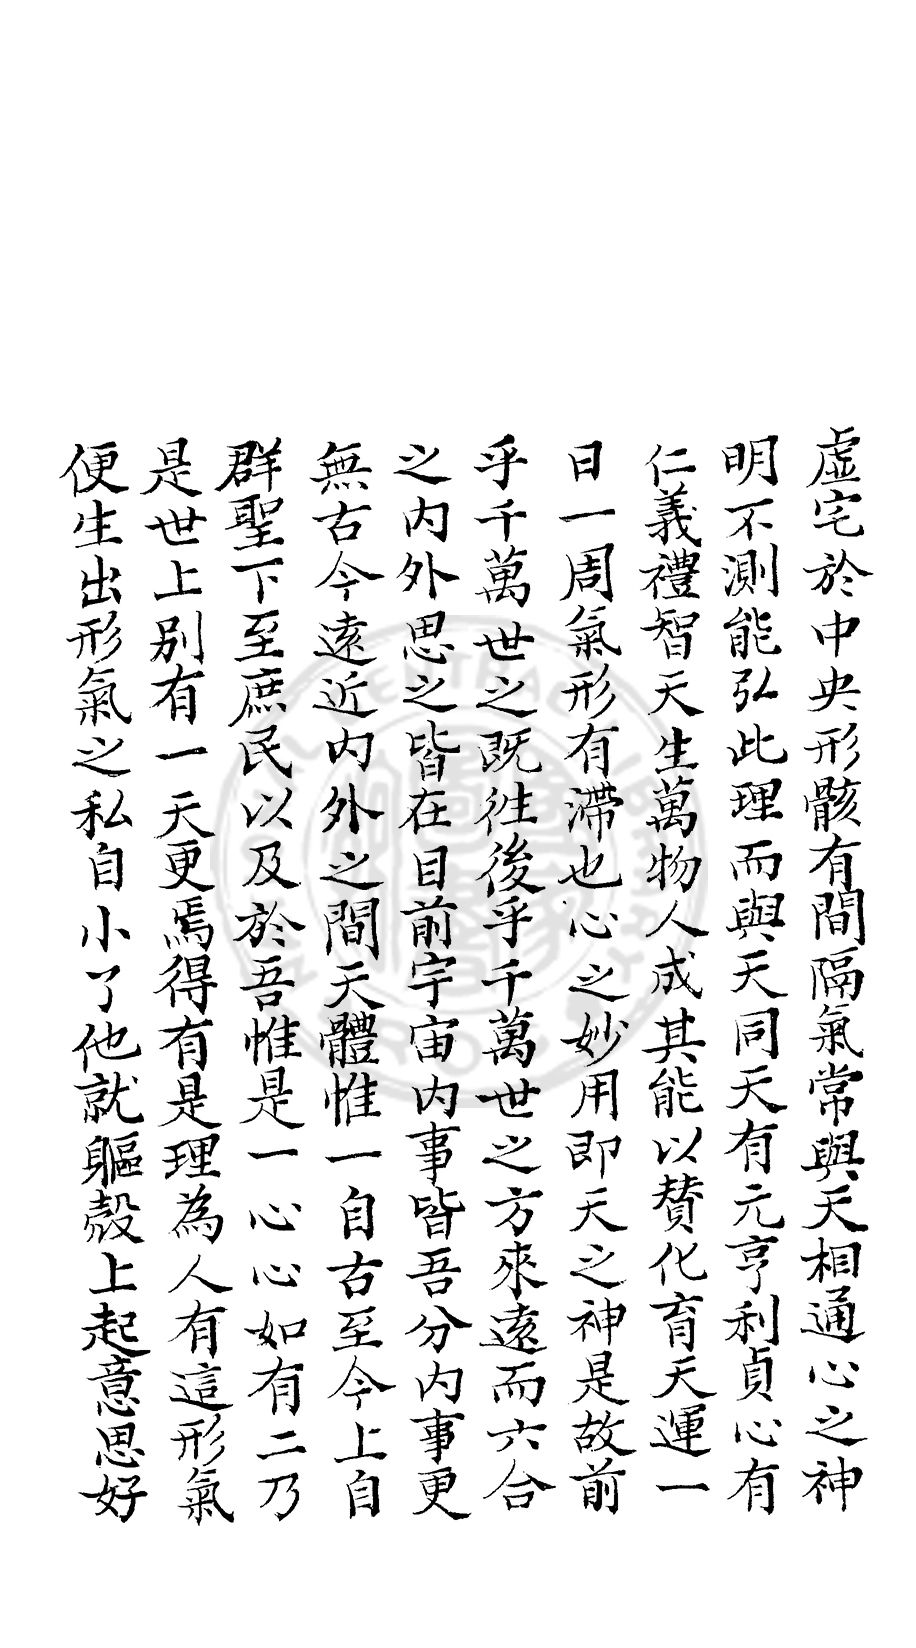 虛宅於中央形骸有間隔氣常與天相通心之神
明不測能弘此理而與天同天有元亨利貞心有
仁義禮智天生萬物人成其能以賛化育天運一
日一周氣形有滯也心之妙用即天之神是故前
乎千萬世之既徃後乎千萬世之方來遠而六合
之內外思之皆在目前宇宙內事皆吾分內事更
無古今遠近內外之間天體惟一自古至今上自
群聖下至庶民以及於吾惟是一心心如有二乃
是世上別有一天更焉得有是理為人有這形氣
便生出形氣之私自小了他就軀殼上起意思好